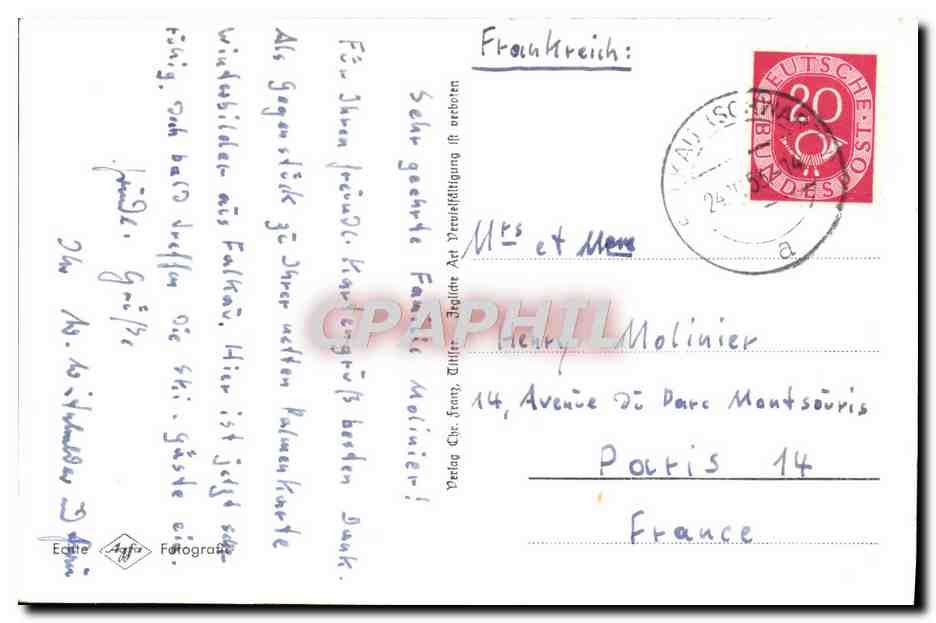 Frankreich:
DEUTSCHE
BUNDESPOST
20
FALKAU (SCHWAR
24.
a
Mrs et Mme
Henry Molinier
14, Avenue du Parc Montsouris
Paris 14
France
Verlag Chr. Franz, Titisee Jegliche Art Vervielfältigung ist verboten
Sehr geehrte Familie Molinier!
Für Ihren freundl. Kartengruß besten Dank.
Als Gegenstück zu Ihrer netten Palmenkarte
Winterbilder aus Falkau. Hier ist jetzt sehr
ruhig. Doch bald treffen die Ski-Gäste ein.
freundl. Grüße
Ihr
Echte Agfa Fotografie
CPAPHIL